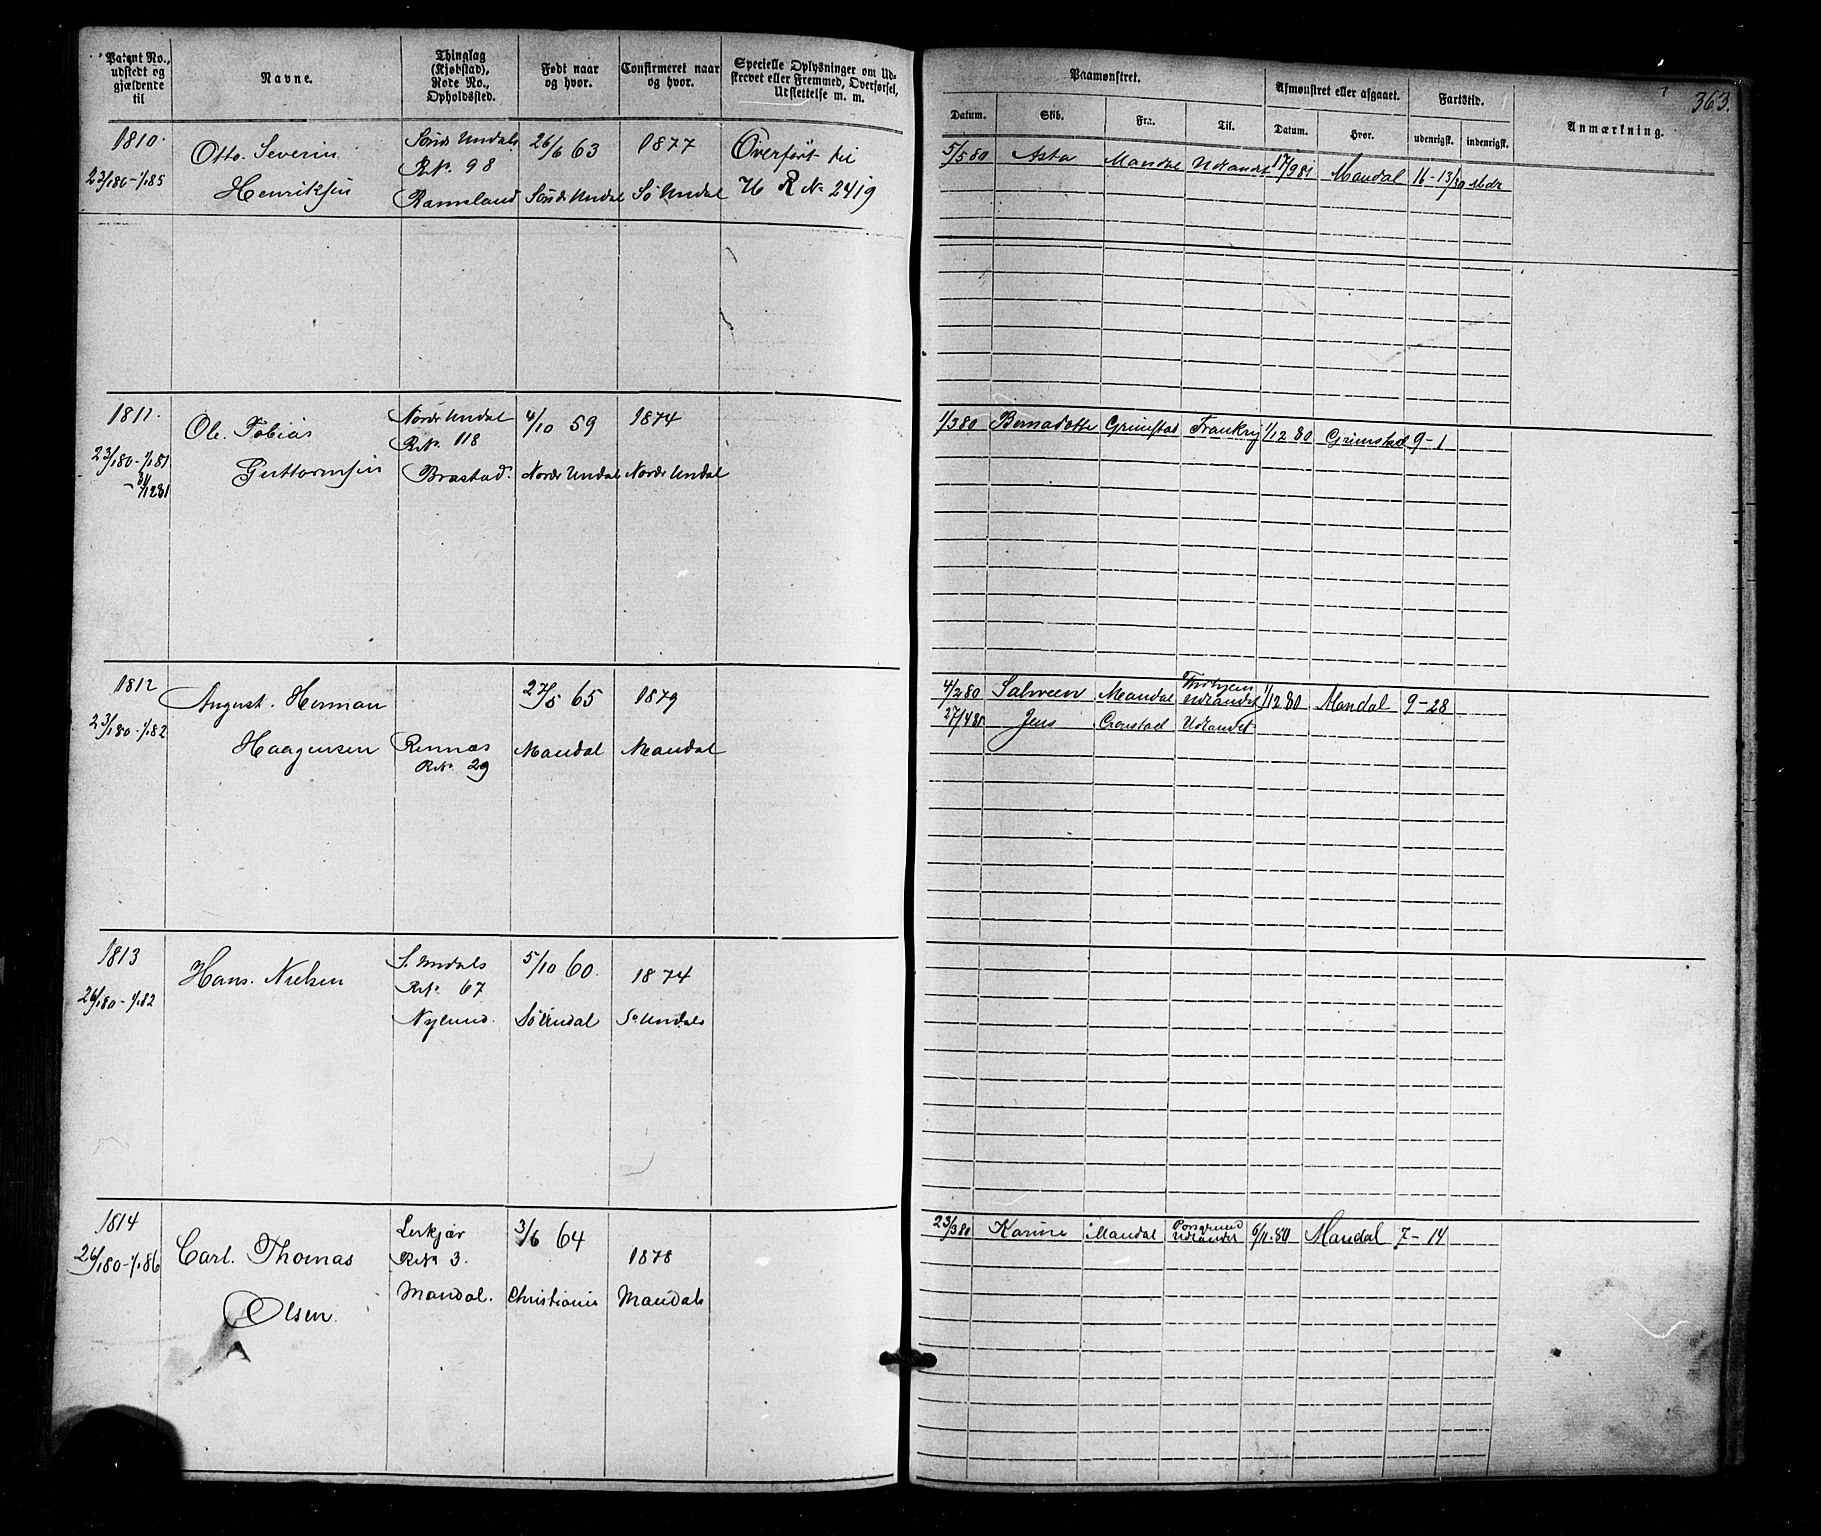 363.
Patent No., udstedt og gjældende til
Navne.
Thinglag (Kjøbstad), Rode No., Opholdssted.
Født naar og hvor.
Confirmeret naar og hvor.
Specielle Oplysninger om Udskrevet eller Fremmed, Overførsel, Udslettelse m. m.
Paamønstret.
Afmønstret eller afgaaet.
Fartstid.
Anmærkning.
Datum.
Skib.
Fra.
Til.
Datum.
Hvor.
udenrigsk.
indenrigsk.
1810. Otto Severin Søndr Undals 26/6 63 1877 Overført til
23/1 80 - 1/1 85 Henriksen R.No. 98
Ramsland Søndr Undal Sø Undal H R No 2419
5/5 80 Asta Mandal Udlandet 17/9 81 Mandal 16 - 13/30 Mdr
1811. Ole Tobias Nordr Undal 4/10 59 1874
R.No. 118
23/1 80 - 1/1 81 Guttormsen Brastad. Nordr Undal Nordr Undal
- 31/12 81
1/3 80 Bernadotte Grimstad Frankrig 1/12 80 Grimstad 9 - 1
1812 August Herman 27/5 65 1879
23/1 80 - 1/1 82 Haagensen Rennæs Mandal Mandal
R.No. 29
4/2 80 Salveen Mandal Udlandet 1/12 80 Mandal 9 - 28
27/4 81 Jens Cronstad Udlandet
1813 Hans Nielsen S. Undals 5/10 60. 1874
R.No. 67
26/1 80 - 1/1 82 Nylund. Sø Undal Sø Undals
1814 Carl Thomas Lerkjær 3/6 64 1878
26/1 80 - 1/1 86 R.No 3.
Olsen Mandal. Christiania Mandals
23/3 80 Karine Mandal Porsgrund Udlandet 6/11 80 Mandal 7 - 14